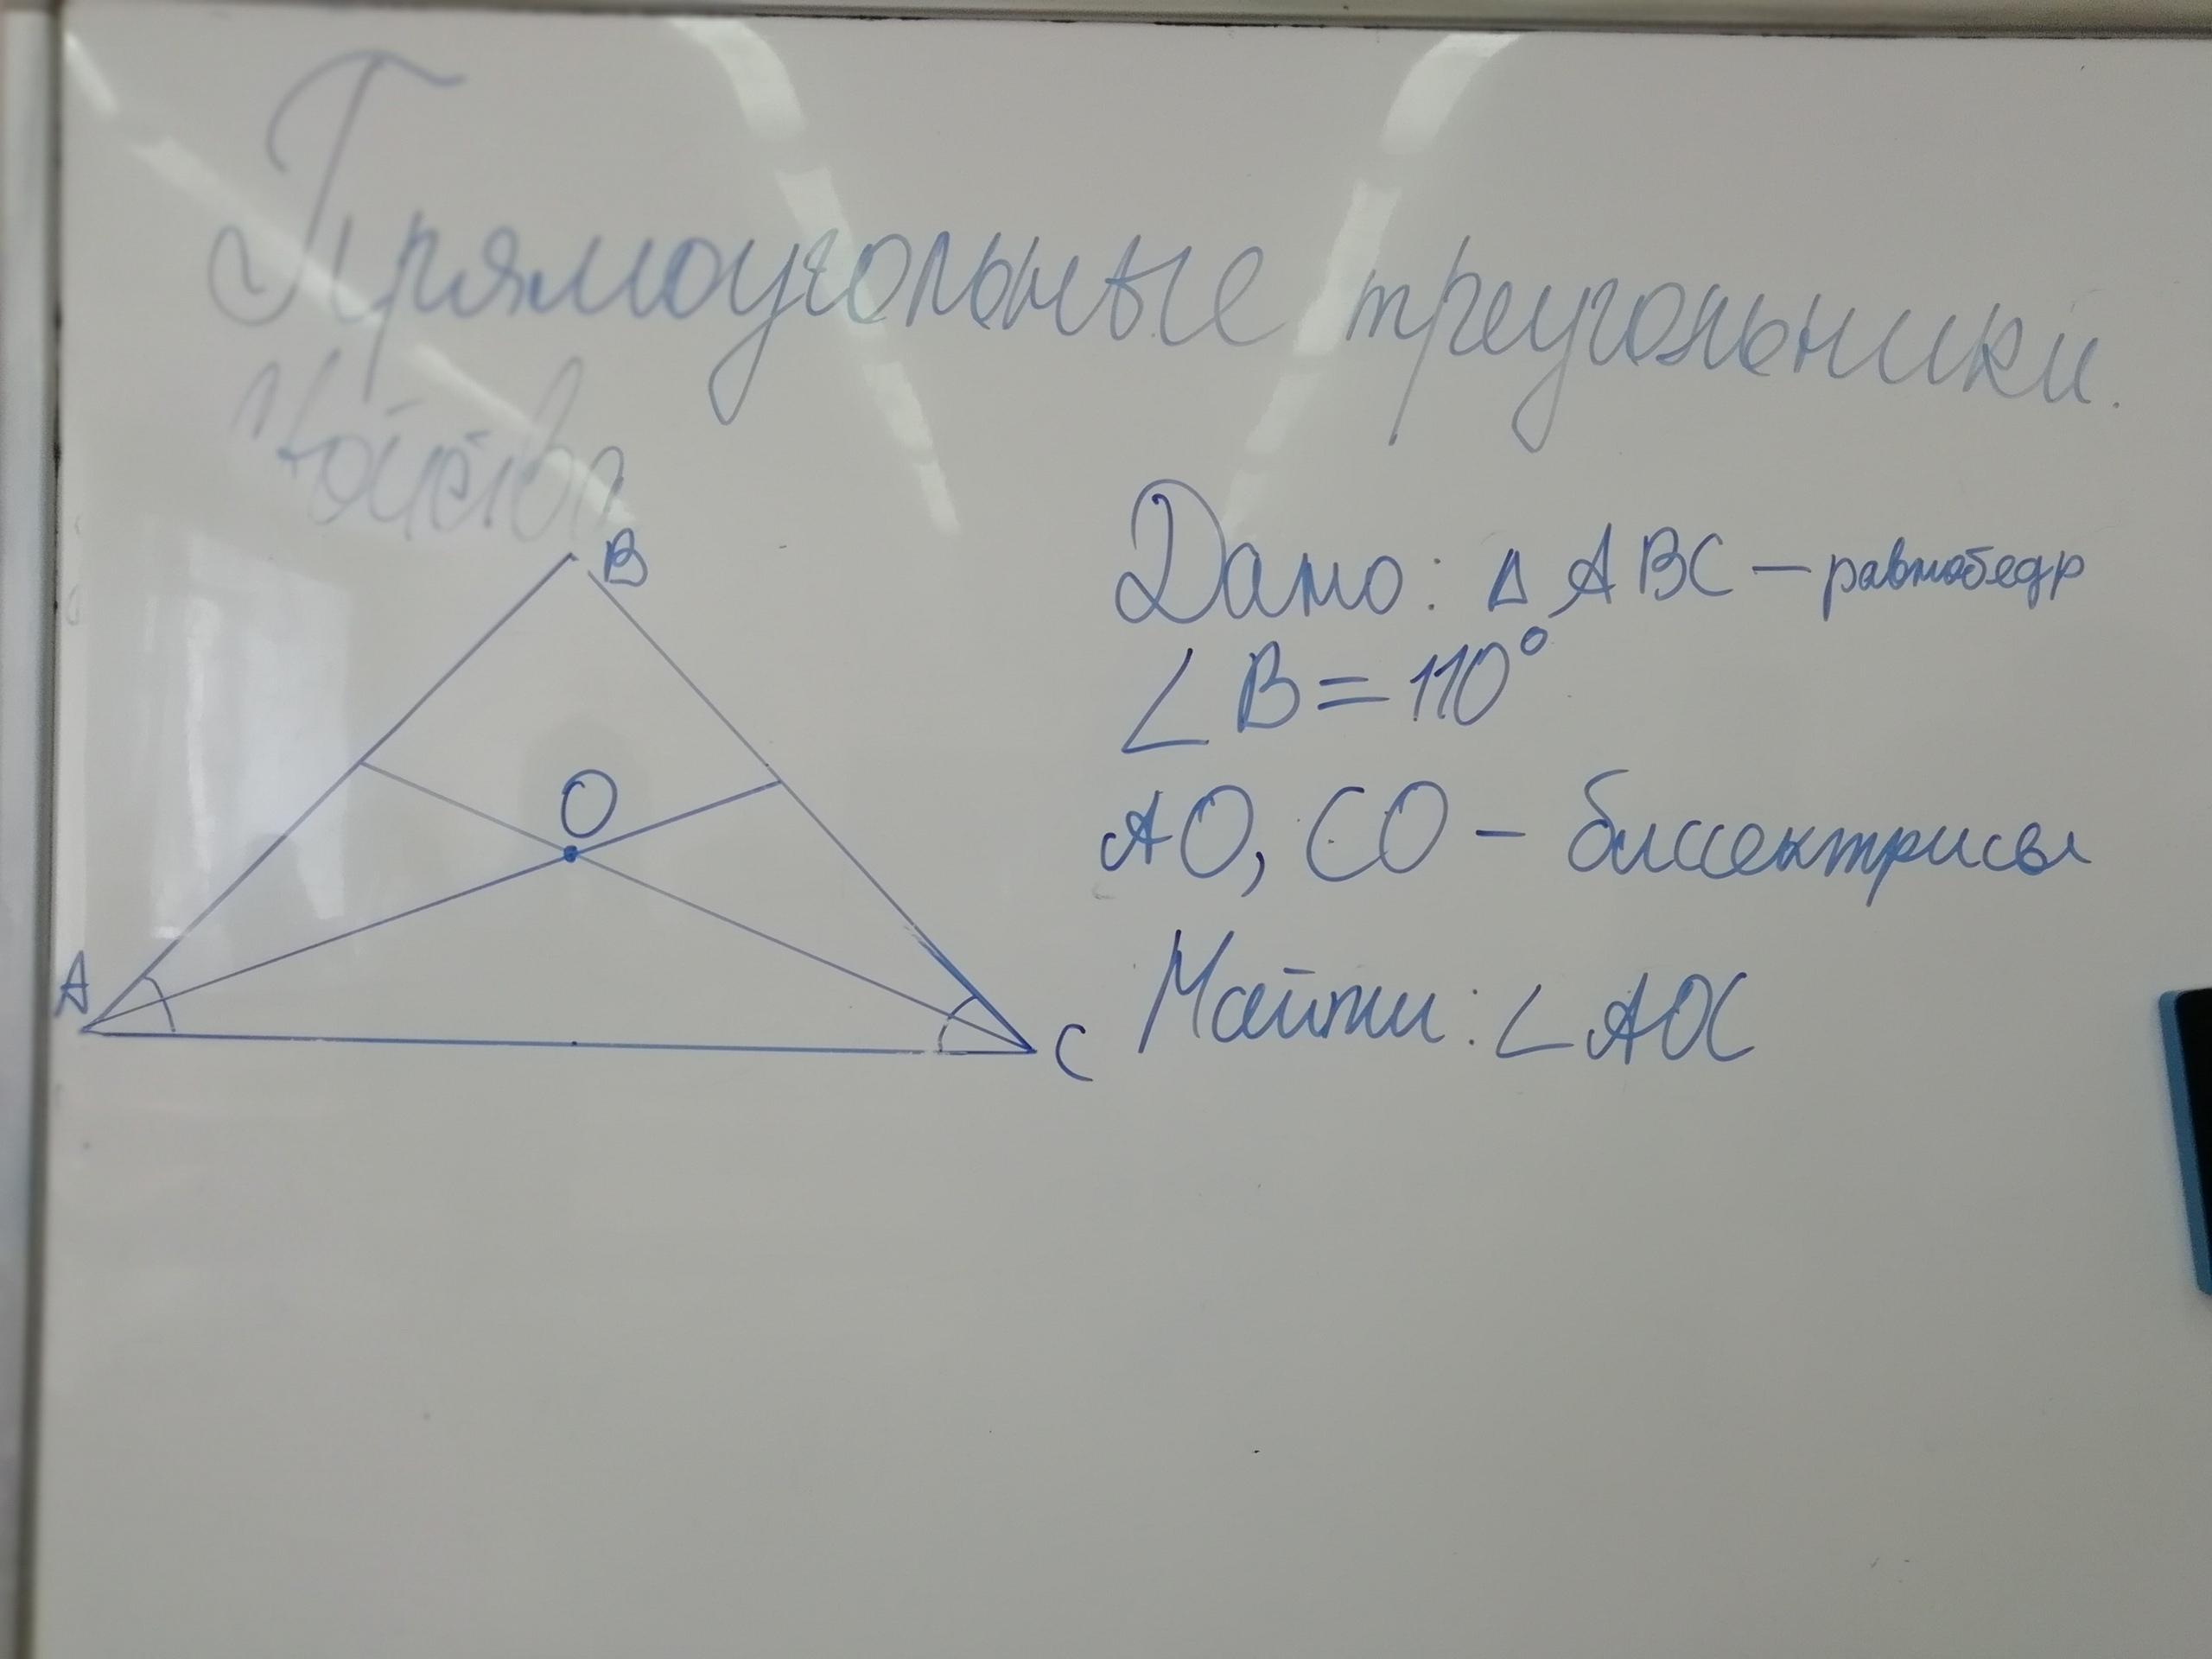 Прямоугольные треугольники.
B
Дано: Δ ABC – равнобедр
∠ B = 110°
O
AO, CO – биссектрисы
A
Найти: ∠ AOC
C